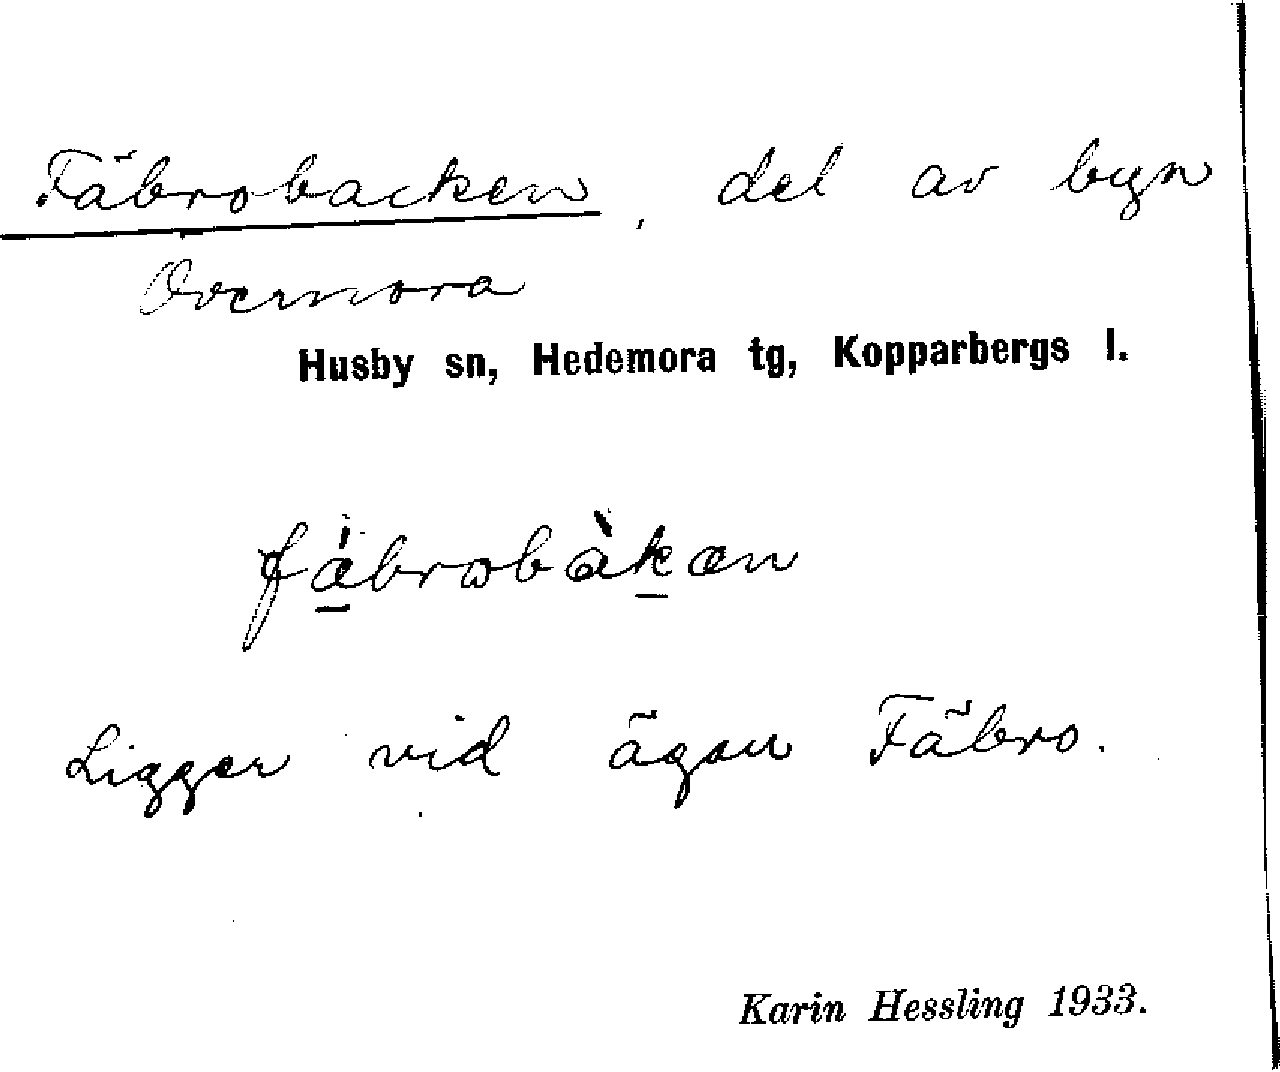 Fäbrobacken, del av byn
Övermora
Husby sn, Hedemora tg, Kopparbergs l.
fæ̀brobàkæn
Ligger vid ägan Fäbro.
Karin Hessling 1933.